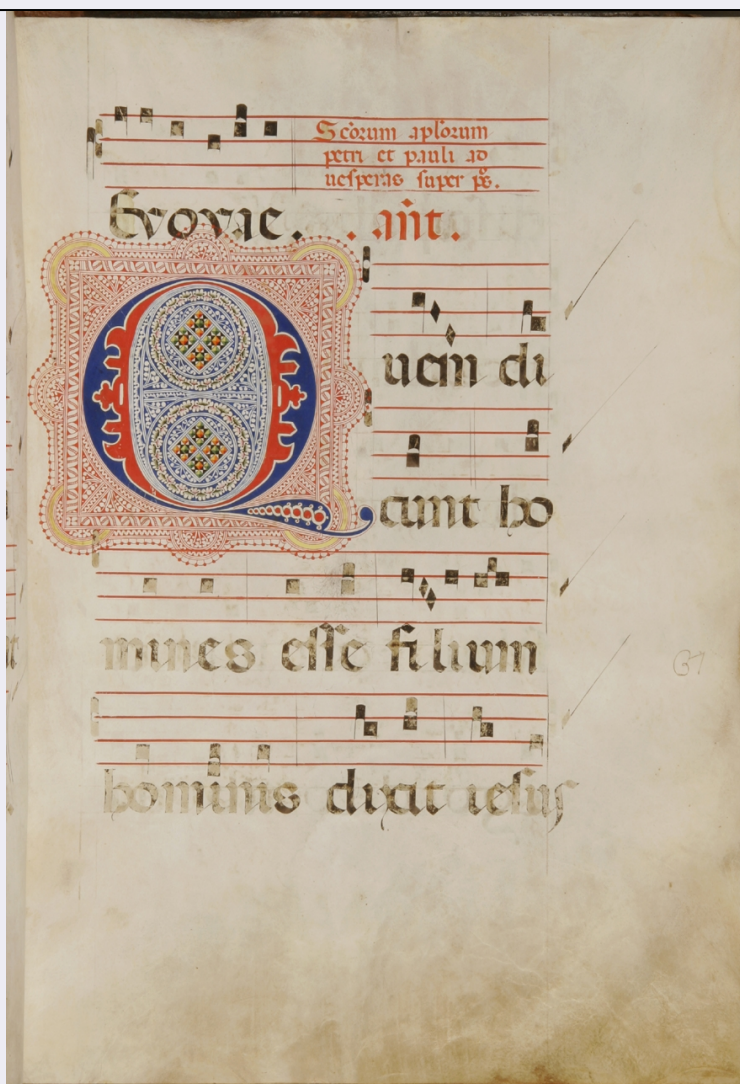 Scōrum aplōrum
petri et pauli ad
uesperas super ps.
Evovae. . añt.
Quem di
cunt ho
mines esse filium
hominis dixit iesus
67